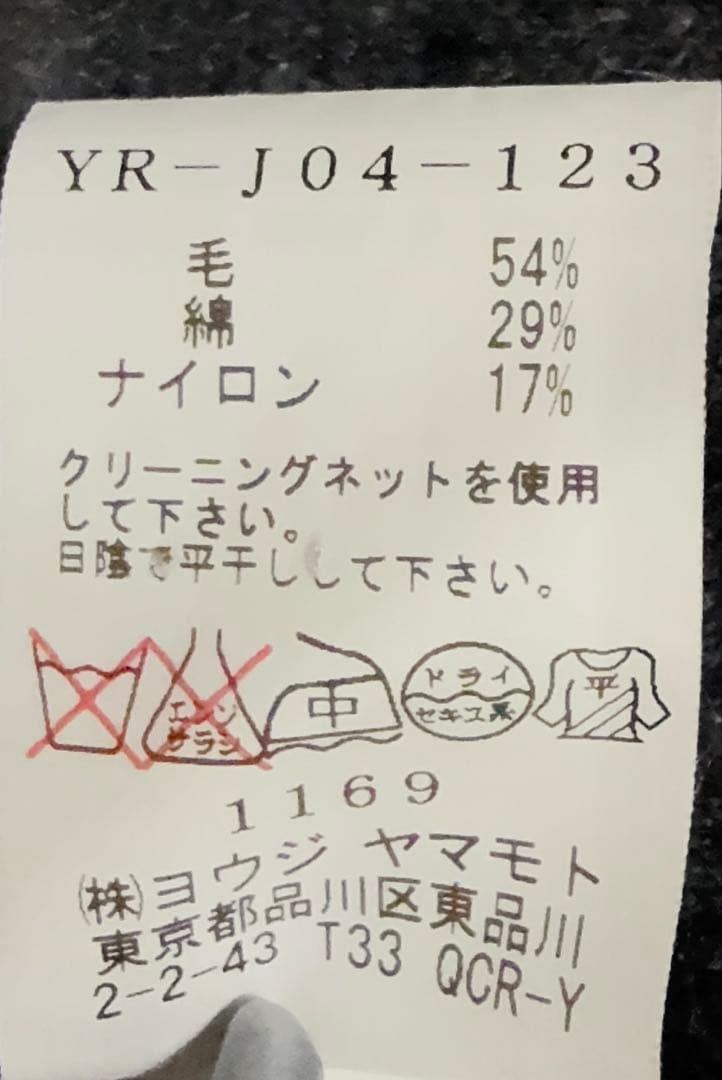 YR-J04-123
毛 54%
綿 29%
ナイロン 17%
クリーニングネットを使用
して下さい。
日陰で平干しして下さい。
エンソ
サラシ
中
ドライ
セキユ系
平
1169
(株)ヨウジ ヤマモト
東京都品川区東品川
2-2-43 T33 QCR-Y